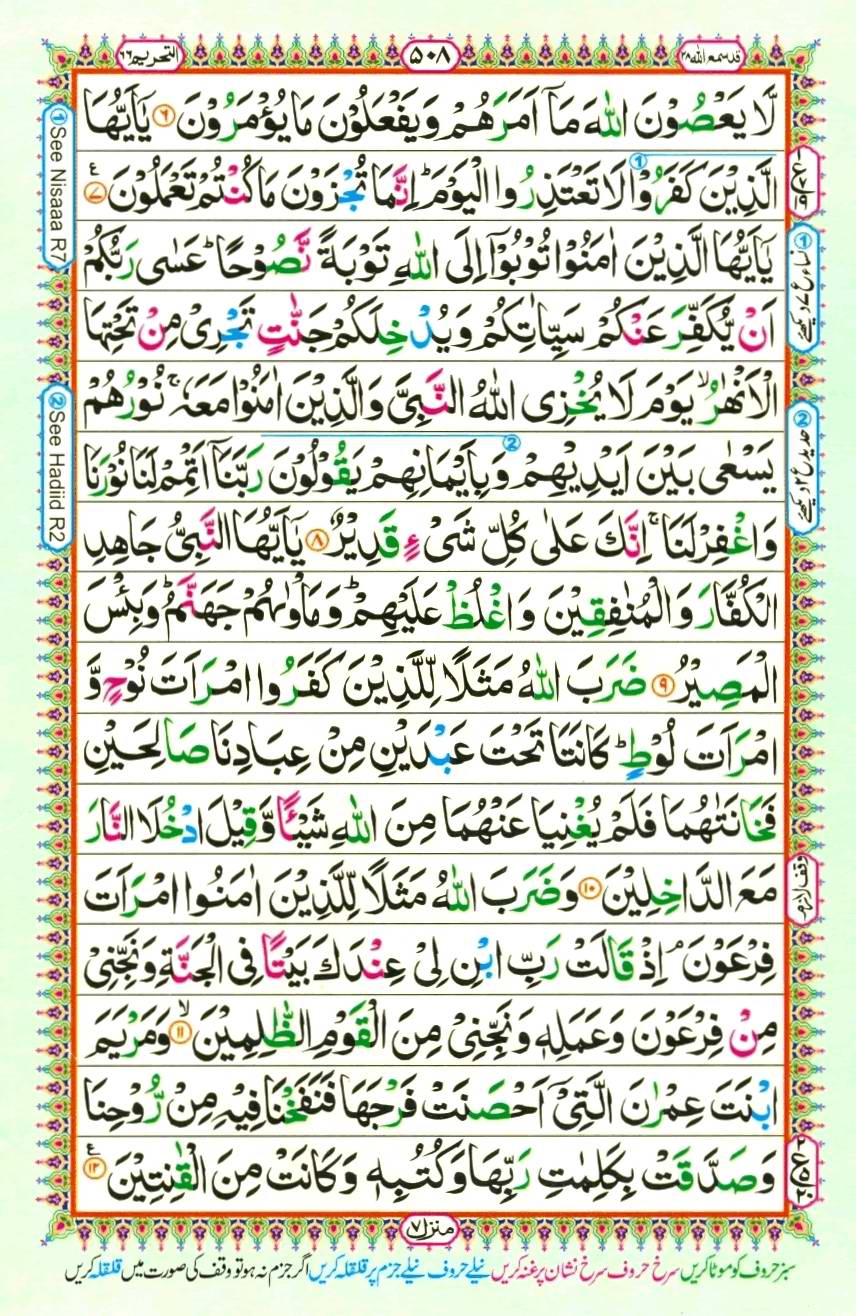 قد سمع الله ٢٨
٥٠٨
التحريم ٦٦
لَّا يَعْصُوْنَ اللّٰهَ مَاۤ اَمَرَهُمْ وَيَفْعَلُوْنَ مَا يُؤْمَرُوْنَ ۶ يٰۤاَيُّهَا
الَّذِيْنَ كَفَرُوْا لَا تَعْتَذِرُوا الْيَوْمَ ؕ اِنَّمَا تُجْزَوْنَ مَا كُنْتُمْ تَعْمَلُوْنَ ۷
يٰۤاَيُّهَا الَّذِيْنَ اٰمَنُوْا تُوْبُوْۤا اِلَى اللّٰهِ تَوْبَةً نَّصُوْحًا ؕ عَسٰى رَبُّكُمْ
اَنْ يُّكَفِّرَ عَنْكُمْ سَيِّاٰتِكُمْ وَيُدْخِلَكُمْ جَنّٰتٍ تَجْرِىْ مِنْ تَحْتِهَا
الْاَنْهٰرُ ۙ يَوْمَ لَا يُخْزِى اللّٰهُ النَّبِىَّ وَالَّذِيْنَ اٰمَنُوْا مَعَهٗ ۚ نُوْرُهُمْ
يَسْعٰى بَيْنَ اَيْدِيْهِمْ وَبِاَيْمَانِهِمْ يَقُوْلُوْنَ رَبَّنَاۤ اَتْمِمْ لَنَا نُوْرَنَا
وَاغْفِرْ لَنَا ۚ اِنَّكَ عَلٰى كُلِّ شَىْءٍ قَدِيْرٌ ۸ يٰۤاَيُّهَا النَّبِىُّ جَاهِدِ
الْكُفَّارَ وَالْمُنٰفِقِيْنَ وَاغْلُظْ عَلَيْهِمْ ؕ وَمَاْوٰىهُمْ جَهَنَّمُ ؕ وَبِئْسَ
الْمَصِيْرُ ۹ ضَرَبَ اللّٰهُ مَثَلًا لِّلَّذِيْنَ كَفَرُوا امْرَاَتَ نُوْحٍ وَّ
امْرَاَتَ لُوْطٍ ؕ كَانَتَا تَحْتَ عَبْدَيْنِ مِنْ عِبَادِنَا صَالِحَيْنِ
فَخَانَتٰهُمَا فَلَمْ يُغْنِيَا عَنْهُمَا مِنَ اللّٰهِ شَيْـًٔا وَّقِيْلَ ادْخُلَا النَّارَ
مَعَ الدّٰخِلِيْنَ ۱۰ وَضَرَبَ اللّٰهُ مَثَلًا لِّلَّذِيْنَ اٰمَنُوا امْرَاَتَ
فِرْعَوْنَ ۘ اِذْ قَالَتْ رَبِّ ابْنِ لِىْ عِنْدَكَ بَيْتًا فِى الْجَنَّةِ وَنَجِّنِىْ
مِنْ فِرْعَوْنَ وَعَمَلِهٖ وَنَجِّنِىْ مِنَ الْقَوْمِ الظّٰلِمِيْنَ ۱۱ ۙ وَمَرْيَمَ
ابْنَتَ عِمْرٰنَ الَّتِىْۤ اَحْصَنَتْ فَرْجَهَا فَنَفَخْنَا فِيْهِ مِنْ رُّوْحِنَا
وَصَدَّقَتْ بِكَلِمٰتِ رَبِّهَا وَكُتُبِهٖ وَكَانَتْ مِنَ الْقٰنِتِيْنَ ۱۲ ع
① See Nisaaa R7
② See Hadiid R2
وقف لازم
منزل ۷
سبز حروف کو موٹا کریں سرخ حروف سرخ نشان پر غنہ کریں نیلے حروف نیلے جزم پر قلقلہ کریں اگر جزم نہ ہو تو وقف کی صورت میں قلقلہ کریں